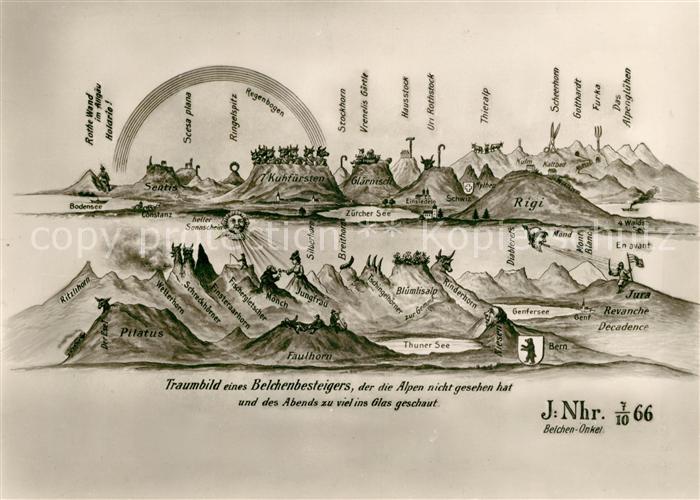 Rothe Wand
im Algäu
Holario!
Scesa plana
Ringelspitz
Regenbogen
Stockhorn
Vrenelis Gärtle
Hausstock
Uri Rothstock
Thieralp
Scheerhorn
Gotthardt
Furka
Das
Alpenglühen
Sentis
7 Kuhfürsten
Glärnisch
Kulm
Kaltbad
Bodensee
Constanz
Einsiedeln
Schwiz
Rigi
Zürcher See
heller
Sonnschein
4 Walds
Silberhorn
Breithorn
Diablerets
Mond
Mont
Blanc
En avant
Ritzlihorn
Wetterhorn
Schreckhörner
Finsteraarhorn
Fischergletscher
Mönch
Jungfrau
Tschingelhörner
zur Gemmi
Blümlisalp
Rinderhorn
Genfersee
Genf
Jura
Revanche
Décadence
Der Esel
Pilatus
Faulhorn
Thuner See
Niesen
Bern
Traumbild eines Belchenbesteigers, der die Alpen nicht gesehen hat
und des Abends zu viel ins Glas geschaut.
J: Nhr. 7/10 66
Belchen-Onkel